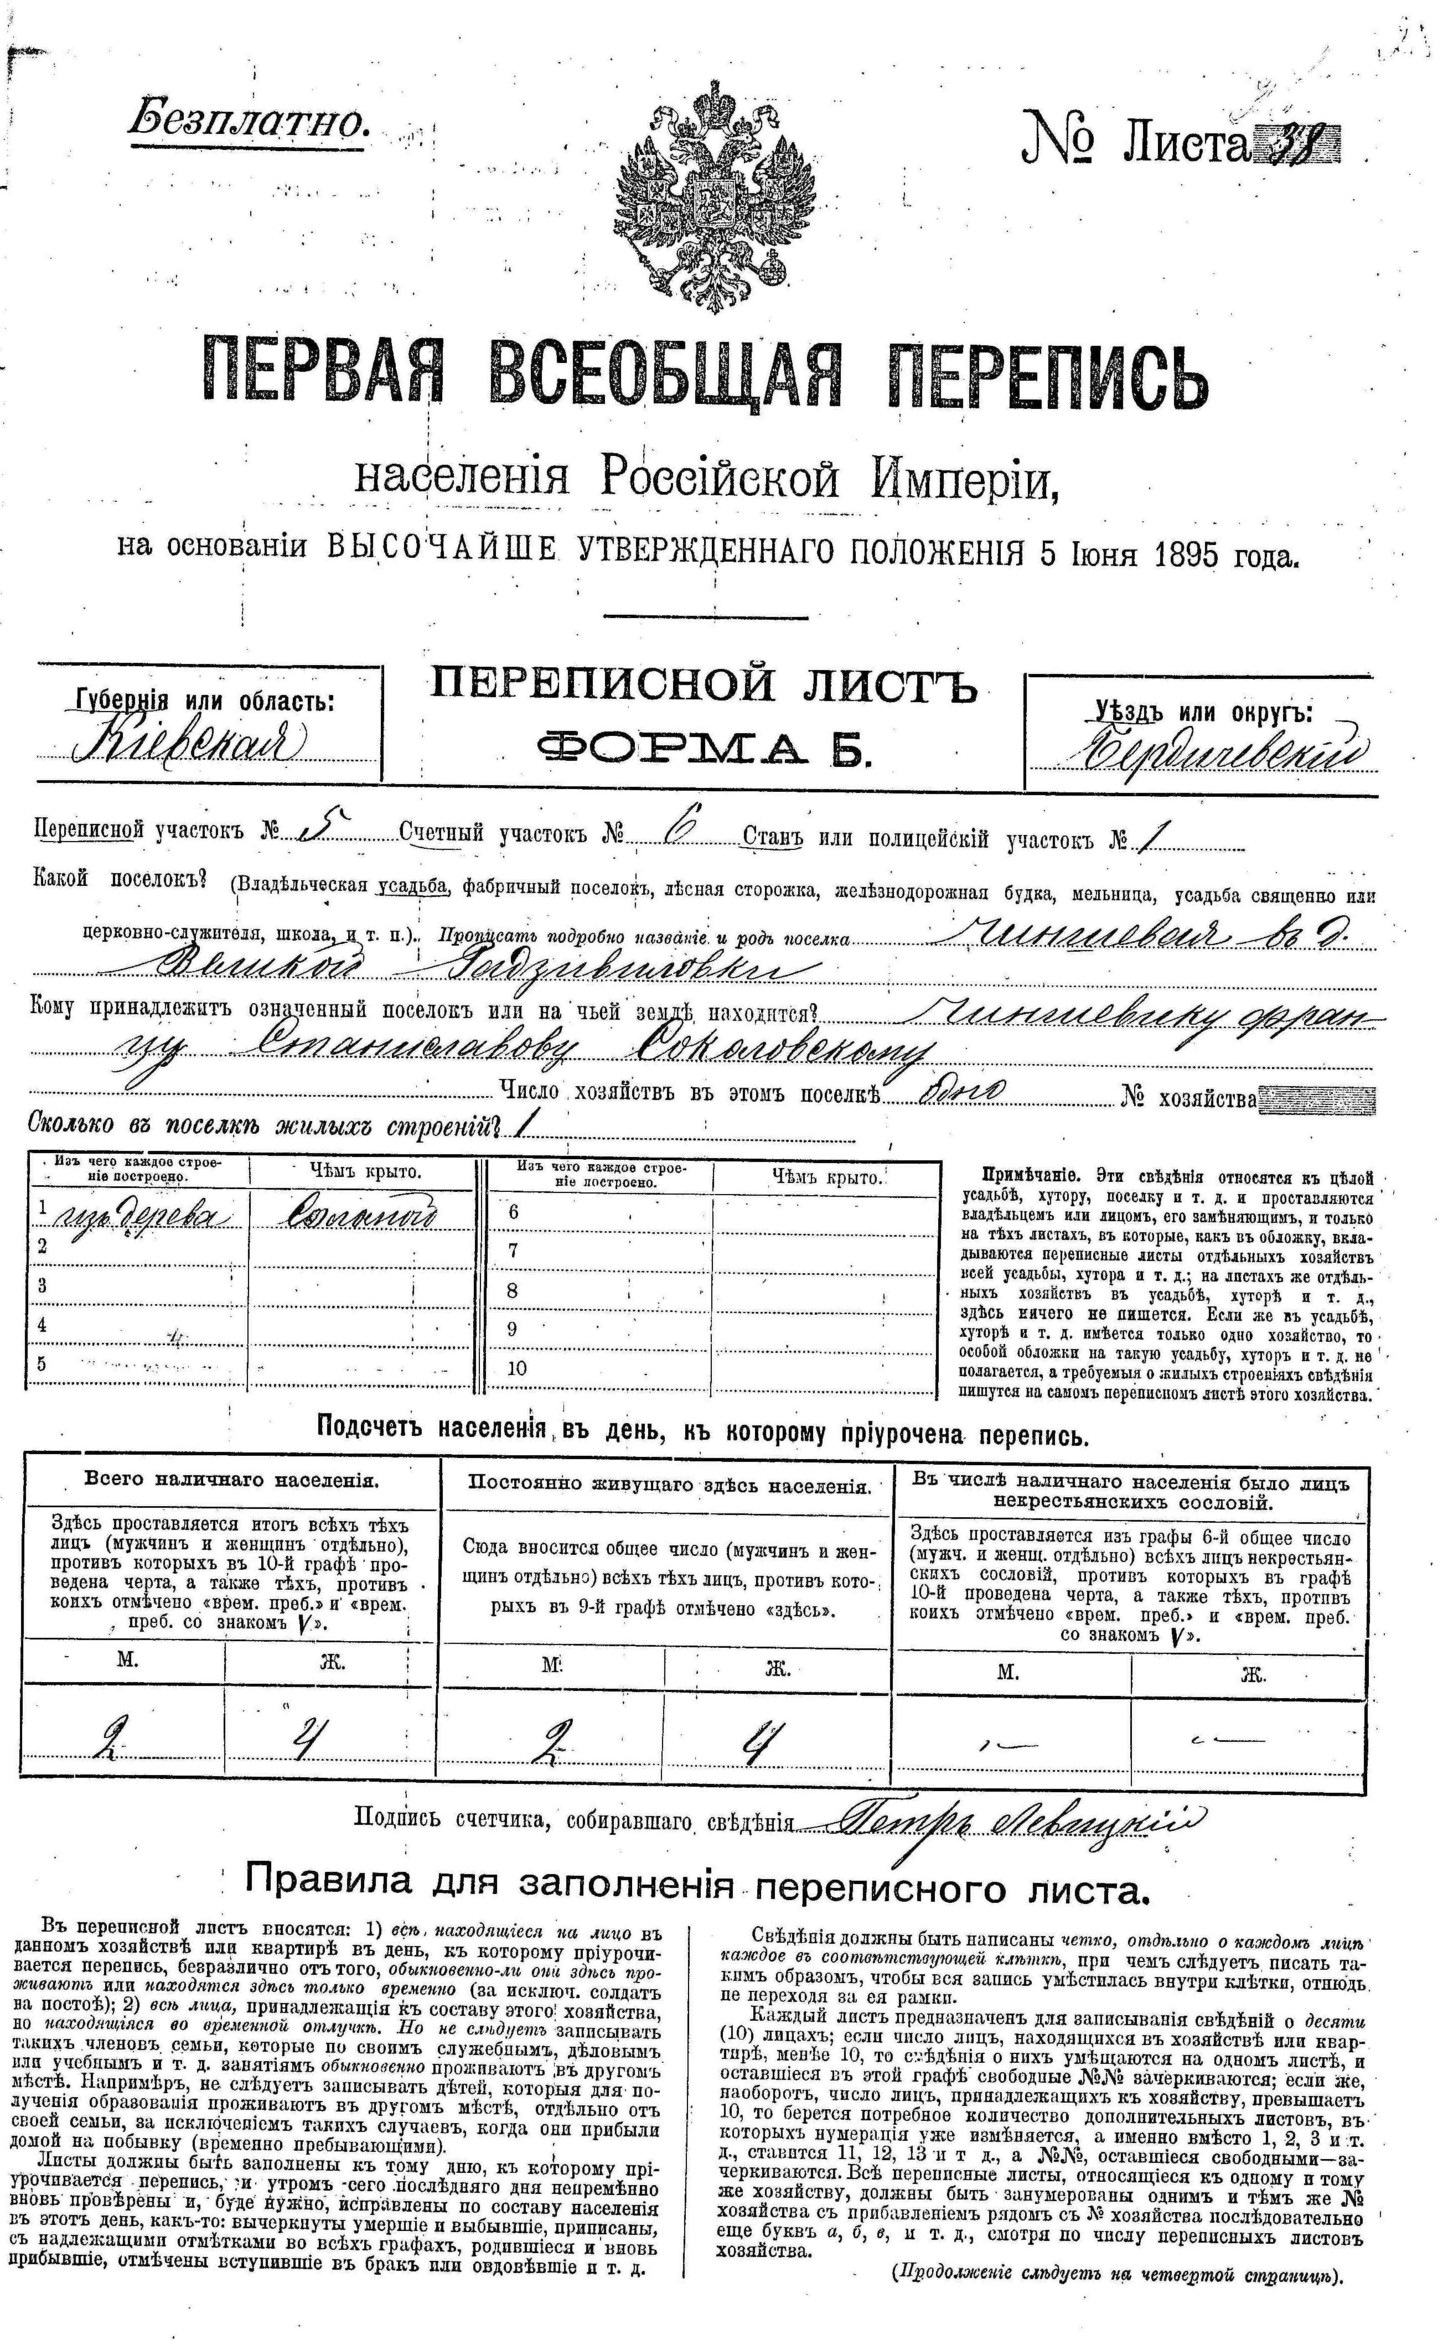 Безплатно.
№ Листа 38
ПЕРВАЯ ВСЕОБЩАЯ ПЕРЕПИСЬ
населенія Россійской Имперіи,
на основаніи ВЫСОЧАЙШЕ УТВЕРЖДЕННАГО ПОЛОЖЕНІЯ 5 Іюня 1895 года.
Губернія или область:
Кіевская
ПЕРЕПИСНОЙ ЛИСТЪ
ФОРМА Б.
Уѣздъ или округъ:
Бердичевскій
Переписной участокъ № 5 Счетный участокъ № 6 Станъ или полицейскій участокъ № 1
Какой поселокъ? (Владѣльческая усадьба, фабричный поселокъ, лѣсная сторожка, желѣзнодорожная будка, мельница, усадьба священно или
церковно-служителя, школа, и т. п.). Прописать подробно названіе и родъ поселка Чиншевая въ д.
Великой Радзивиловки
Кому принадлежитъ означенный поселокъ или на чьей землѣ находится? Чиншевику Фран
цу Станиславову Соколовскому
Число хозяйствъ въ этомъ поселкѣ одно № хозяйства
Сколько въ поселкѣ жилыхъ строеній? 1
Изъ чего каждое строе-
ніе построено.
Чѣмъ крыто.
Изъ чего каждое строе-
ніе построено.
Чѣмъ крыто.
1 изъ дерева Соломой 6
2 7
3 8
4 9
5 10
Примѣчаніе. Эти свѣдѣнія относятся къ цѣлой
усадьбѣ, хутору, поселку и т. д. и проставляются
владѣльцемъ или лицомъ, его замѣняющимъ, и только
на тѣхъ листахъ, въ которые, какъ въ обложку, вкла-
дываются переписные листы отдѣльныхъ хозяйствъ
всей усадьбы, хутора и т. д.; на листахъ же отдѣль-
ныхъ хозяйствъ въ усадьбѣ, хуторѣ и т. д.,
здѣсь ничего не пишется. Если же въ усадьбѣ,
хуторѣ и т. д. имѣется только одно хозяйство, то
особой обложки на такую усадьбу, хуторъ и т. д. не
полагается, а требуемыя о жилыхъ строеніяхъ свѣдѣнія
пишутся на самомъ переписномъ листѣ этого хозяйства.
Подсчетъ населенія въ день, къ которому пріурочена перепись.
Всего наличнаго населенія.
Здѣсь проставляется итогъ всѣхъ тѣхъ
лицъ (мужчинъ и женщинъ отдѣльно),
противъ которыхъ въ 10-й графѣ про-
ведена черта, а также тѣхъ, противъ
коихъ отмѣчено «врем. преб.» и «врем.
преб. со знакомъ V».
Постоянно живущаго здѣсь населенія.
Сюда вносится общее число (мужчинъ и жен-
щинъ отдѣльно) всѣхъ тѣхъ лицъ, противъ кото-
рыхъ въ 9-й графѣ отмѣчено «здѣсь».
Въ числѣ наличнаго населенія было лицъ
некрестьянскихъ сословій.
Здѣсь проставляется изъ графы 6-й общее число
(мужч. и женщ. отдѣльно) всѣхъ лицъ некрестьян-
скихъ сословій, противъ которыхъ въ графѣ
10-й проведена черта, а также тѣхъ, противъ
коихъ отмѣчено «врем. преб.» и «врем. преб.
со знакомъ V».
М. Ж. М. Ж. М. Ж.
2 4 2 4 — —
Подпись счетчика, собиравшаго свѣдѣнія Петръ Левицкій
Правила для заполненія переписного листа.
Въ переписной листъ вносятся: 1) всѣ, находящіеся на лицо въ
данномъ хозяйствѣ или квартирѣ въ день, къ которому пріурочи-
вается перепись, безразлично отъ того, обыкновенно-ли они здѣсь про-
живаютъ или находятся здѣсь только временно (за исключ. солдатъ
на постоѣ); 2) всѣ лица, принадлежащія къ составу этого хозяйства,
но находящіяся во временной отлучкѣ. Но не слѣдуетъ записывать
такихъ членовъ семьи, которые по своимъ служебнымъ, дѣловымъ
или учебнымъ и т. д. занятіямъ обыкновенно проживаютъ въ другомъ
мѣстѣ. Напримѣръ, не слѣдуетъ записывать дѣтей, которыя для по-
лученія образованія проживаютъ въ другомъ мѣстѣ, отдѣльно отъ
своей семьи, за исключеніемъ такихъ случаевъ, когда они прибыли
домой на побывку (временно пребывающими).
Листы должны быть заполнены къ тому дню, къ которому прі-
урочивается перепись, и утромъ сего послѣдняго дня непремѣнно
вновь провѣрены и, буде нужно, исправлены по составу населенія
въ этотъ день, какъ-то: вычеркнуты умершіе и выбывшіе, приписаны,
съ надлежащими отмѣтками во всѣхъ графахъ, родившіеся и вновь
прибывшіе, отмѣчены вступившіе въ бракъ или овдовѣвшіе и т. д.
Свѣдѣнія должны быть написаны четко, отдѣльно о каждомъ лицѣ
каждое въ соотвѣтствующей клѣткѣ, при чемъ слѣдуетъ писать та-
кимъ образомъ, чтобы вся запись умѣстилась внутри клѣтки, отнюдь
не переходя за ея рамки.
Каждый листъ предназначенъ для записыванія свѣдѣній о десяти
(10) лицахъ; если число лицъ, находящихся въ хозяйствѣ или квар-
тирѣ, менѣе 10, то свѣдѣнія о нихъ умѣщаются на одномъ листѣ, и
оставшіеся въ этой графѣ свободные №№ зачеркиваются; если же,
наоборотъ, число лицъ, принадлежащихъ къ хозяйству, превышаетъ
10, то берется потребное количество дополнительныхъ листовъ, въ
которыхъ нумерація уже измѣняется, а именно вмѣсто 1, 2, 3 и т.
д., ставится 11, 12, 13 и т д., а №№, оставшіеся свободными—за-
черкиваются. Всѣ переписные листы, относящіеся къ одному и тому
же хозяйству, должны быть занумерованы однимъ и тѣмъ же №
хозяйства съ прибавленіемъ рядомъ съ № хозяйства послѣдовательно
еще буквъ а, б, в, и т. д., смотря по числу переписныхъ листовъ
хозяйства.
(Продолженіе слѣдуетъ на четвертой страницѣ).